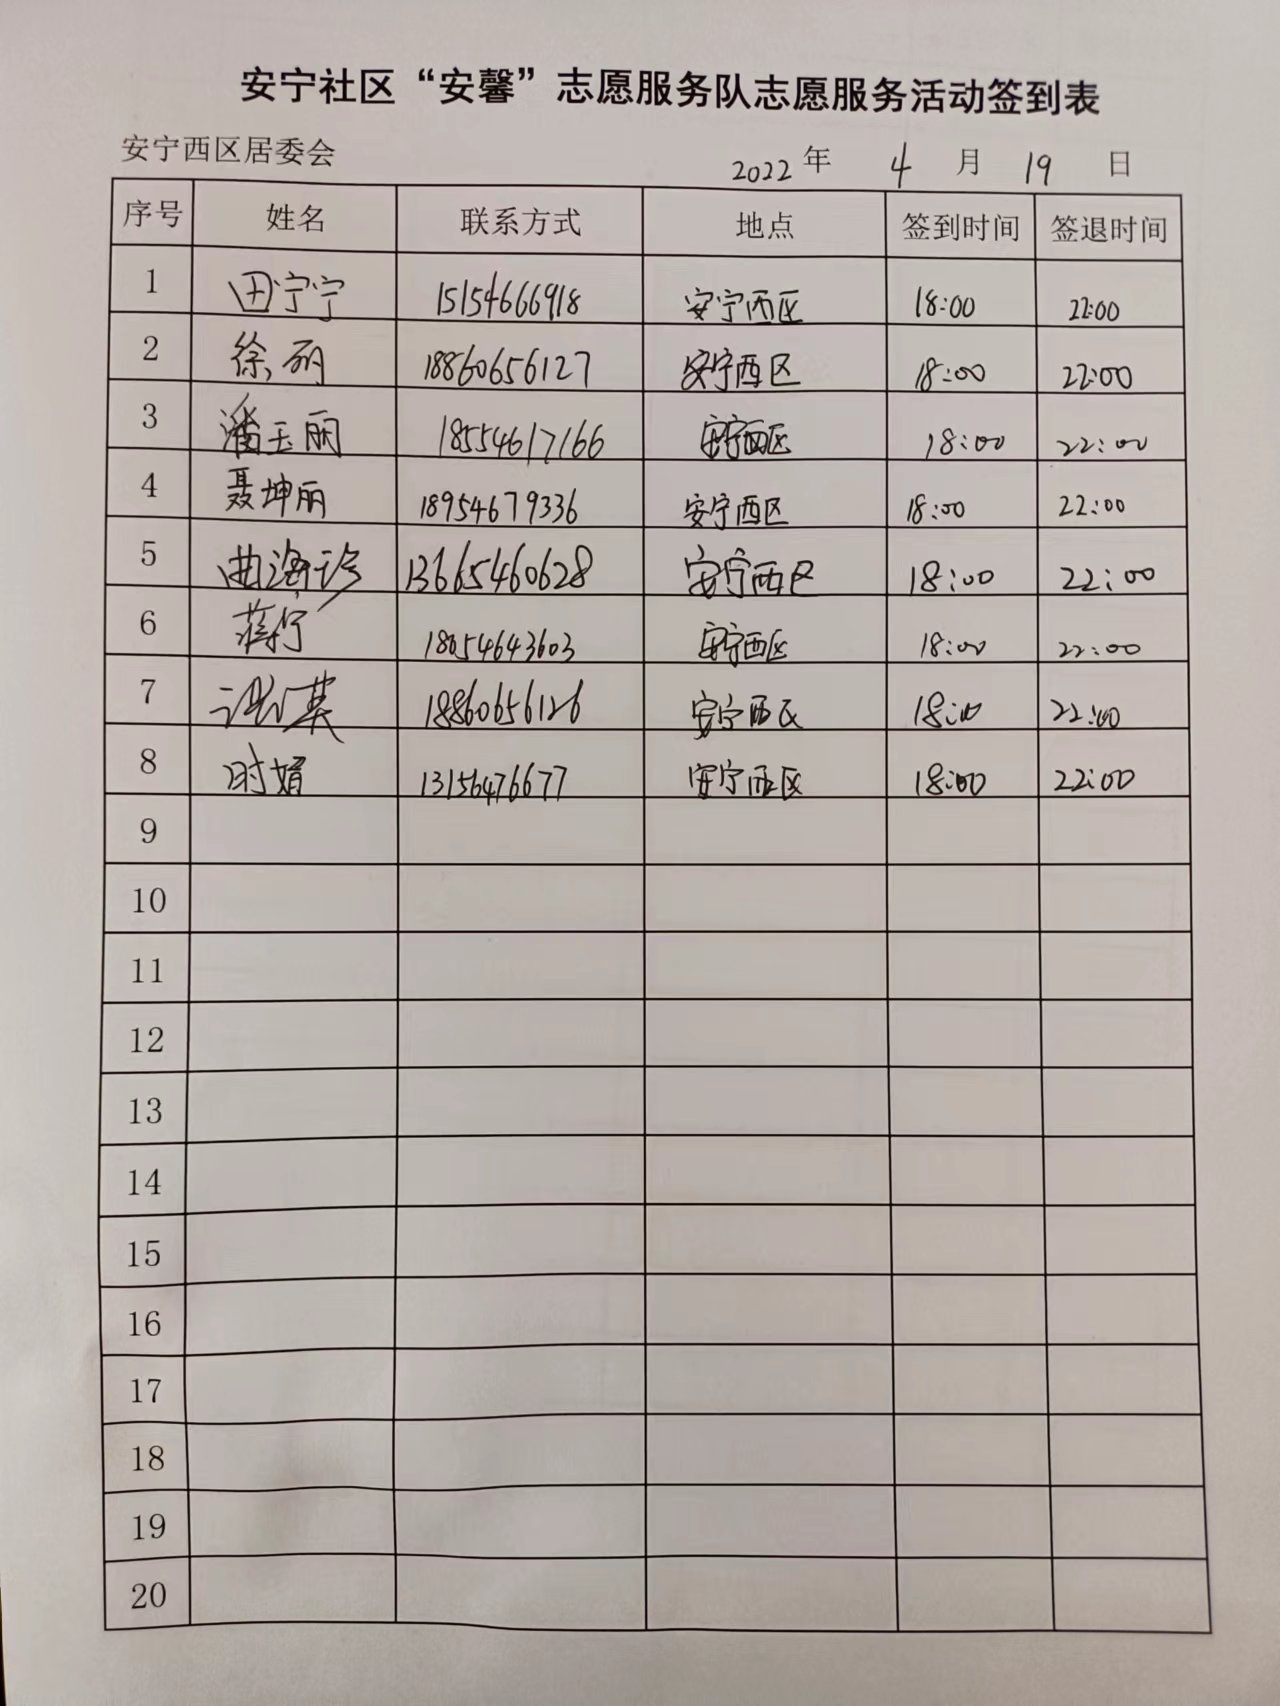 安宁社区“安馨”志愿服务队志愿服务活动签到表
安宁西区居委会 2022年 4月 19日
序号 姓名 联系方式 地点 签到时间 签退时间
1 田宁宁 15154666918 安宁西区 18:00 22:00
2 徐丽 18860656127 安宁西区 18:00 22:00
3 潘玉丽 18554617166 安宁西区 18:00 22:00
4 聂坤丽 18954679336 安宁西区 18:00 22:00
5 曲海珍 13665460628 安宁西区 18:00 22:00
6 蒋宁 18054643603 安宁西区 18:00 22:00
7 18860656126 安宁西区 18:00 22:00
8 时婿 13156476677 安宁西区 18:00 22:00
9
10
11
12
13
14
15
16
17
18
19
20